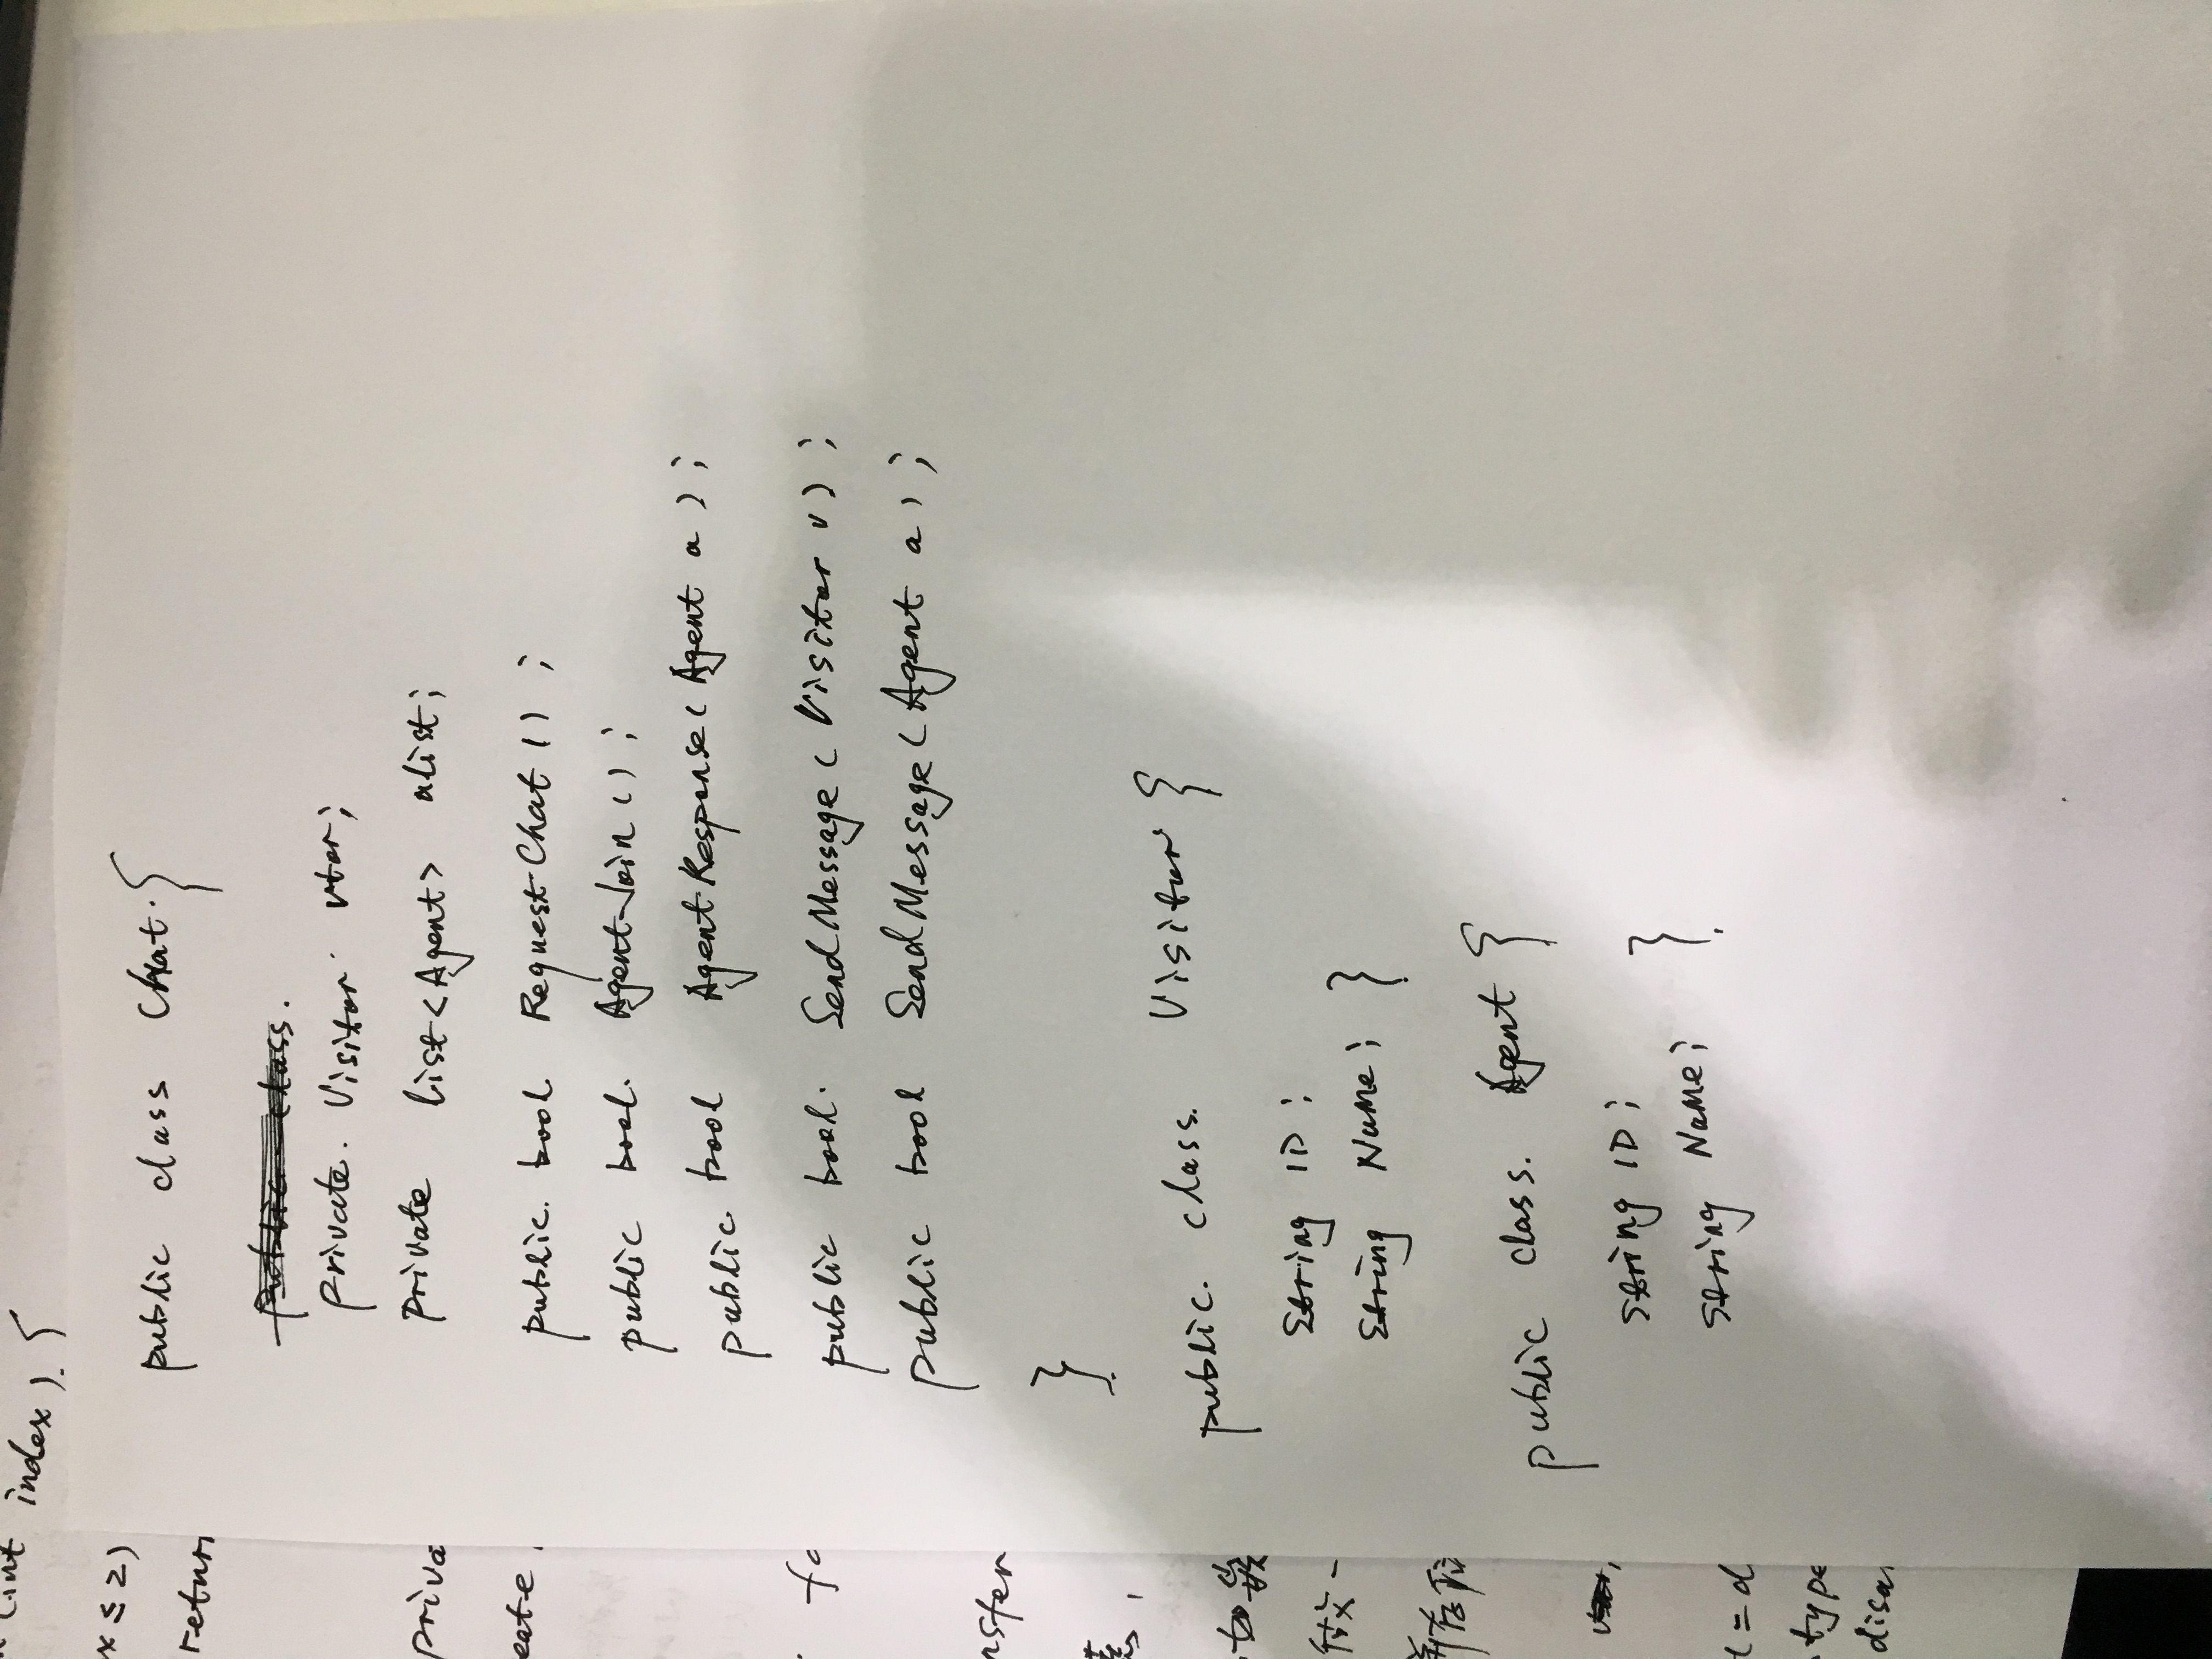 (int index). {
x ≤ 2)
return
priva
eate
fo
nsfer
l = d
type
disa
public class Chat. {
public class.
private. Visitor vtor;
private list<Agent> alist;
public. bool. RequestChat () ;
public bool. AgentJoin () ;
public. bool AgentResponse ( Agent a ) ;
public bool. SendMessage ( Visitor v ) ;
public bool SendMessage ( Agent a ) ;
}
public. class. Visitor {
String ID ;
String Name ; }
public class. Agent {
String ID ;
String Name ; }